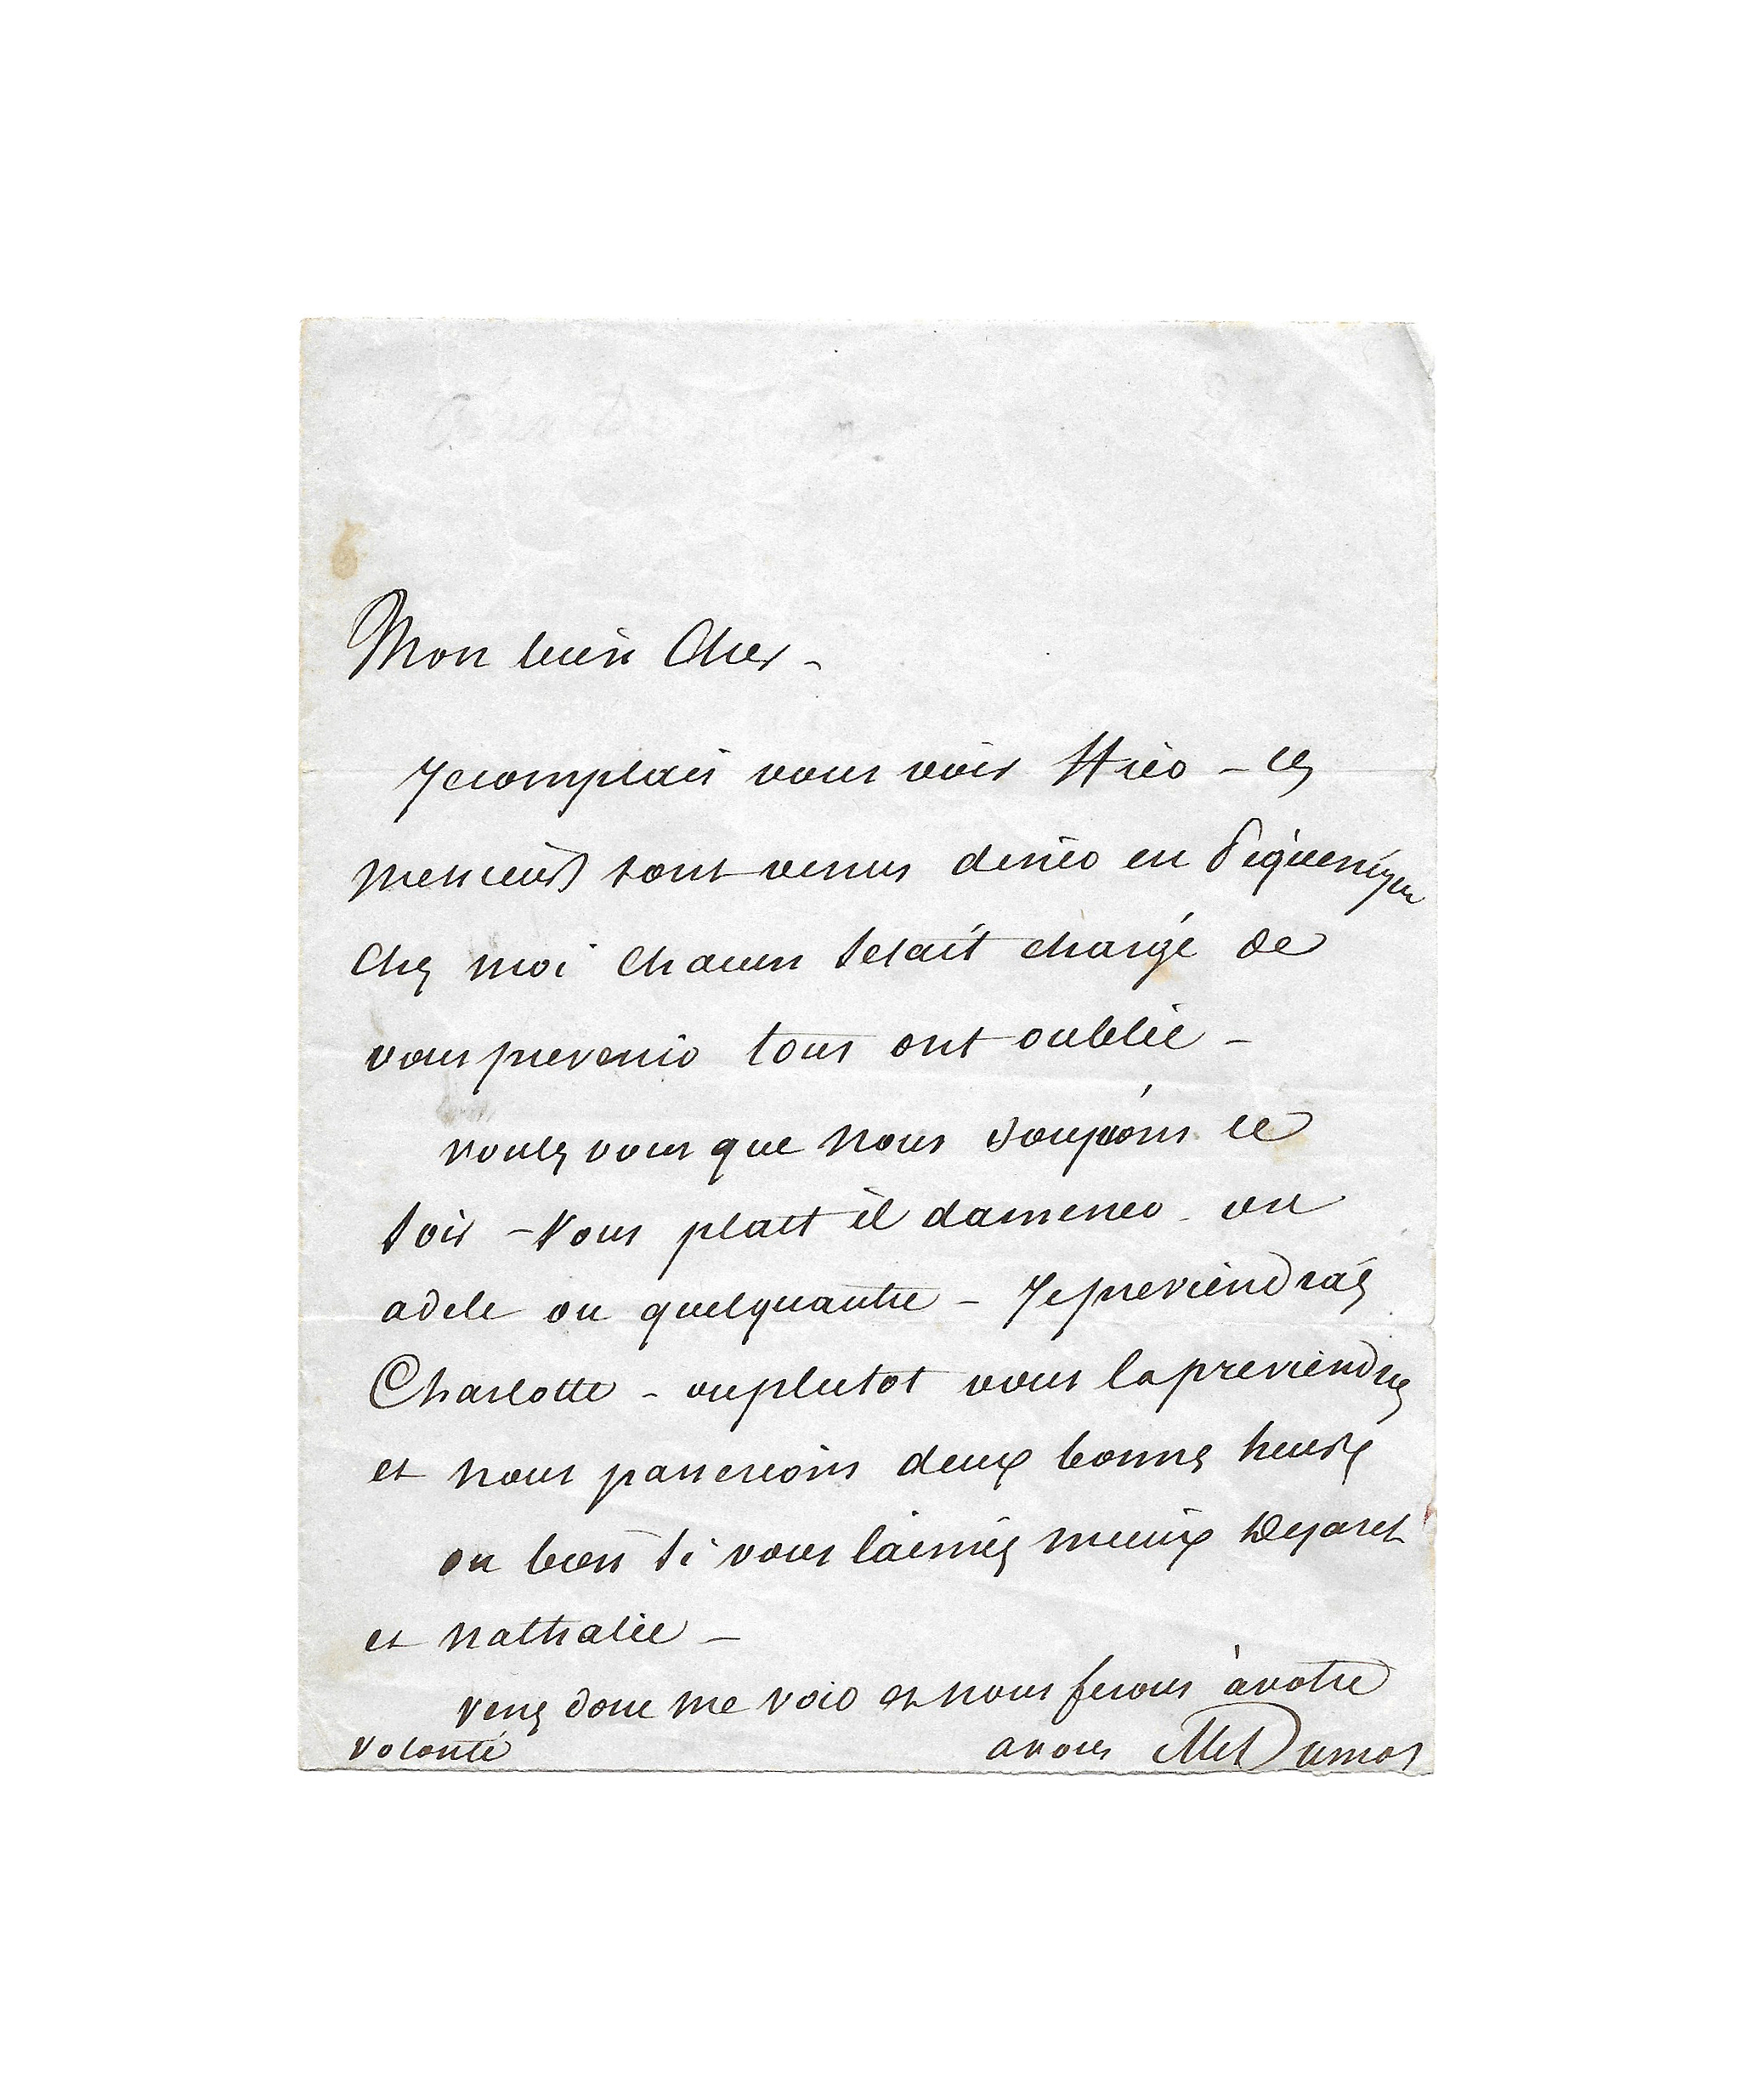 Mon bien Cher -
Je comptais vous voir Hier - ces
messieurs sont venus diner en Piquenique
chez moi chacun setait chargé de
vous prevenir tous ont oublié -
voulez vous que nous soupions ce
soir - Vous plait il damener ou
adele ou quelquautre - Je previendrais
Charlotte - ou plutot vous la previendrez
et nous passerions deux bonnes heures
ou bien si vous laimez mieux Dejazet
et nathalie -
venez donc me voir et nous ferons à votre
volonté
a vous Alex Dumas